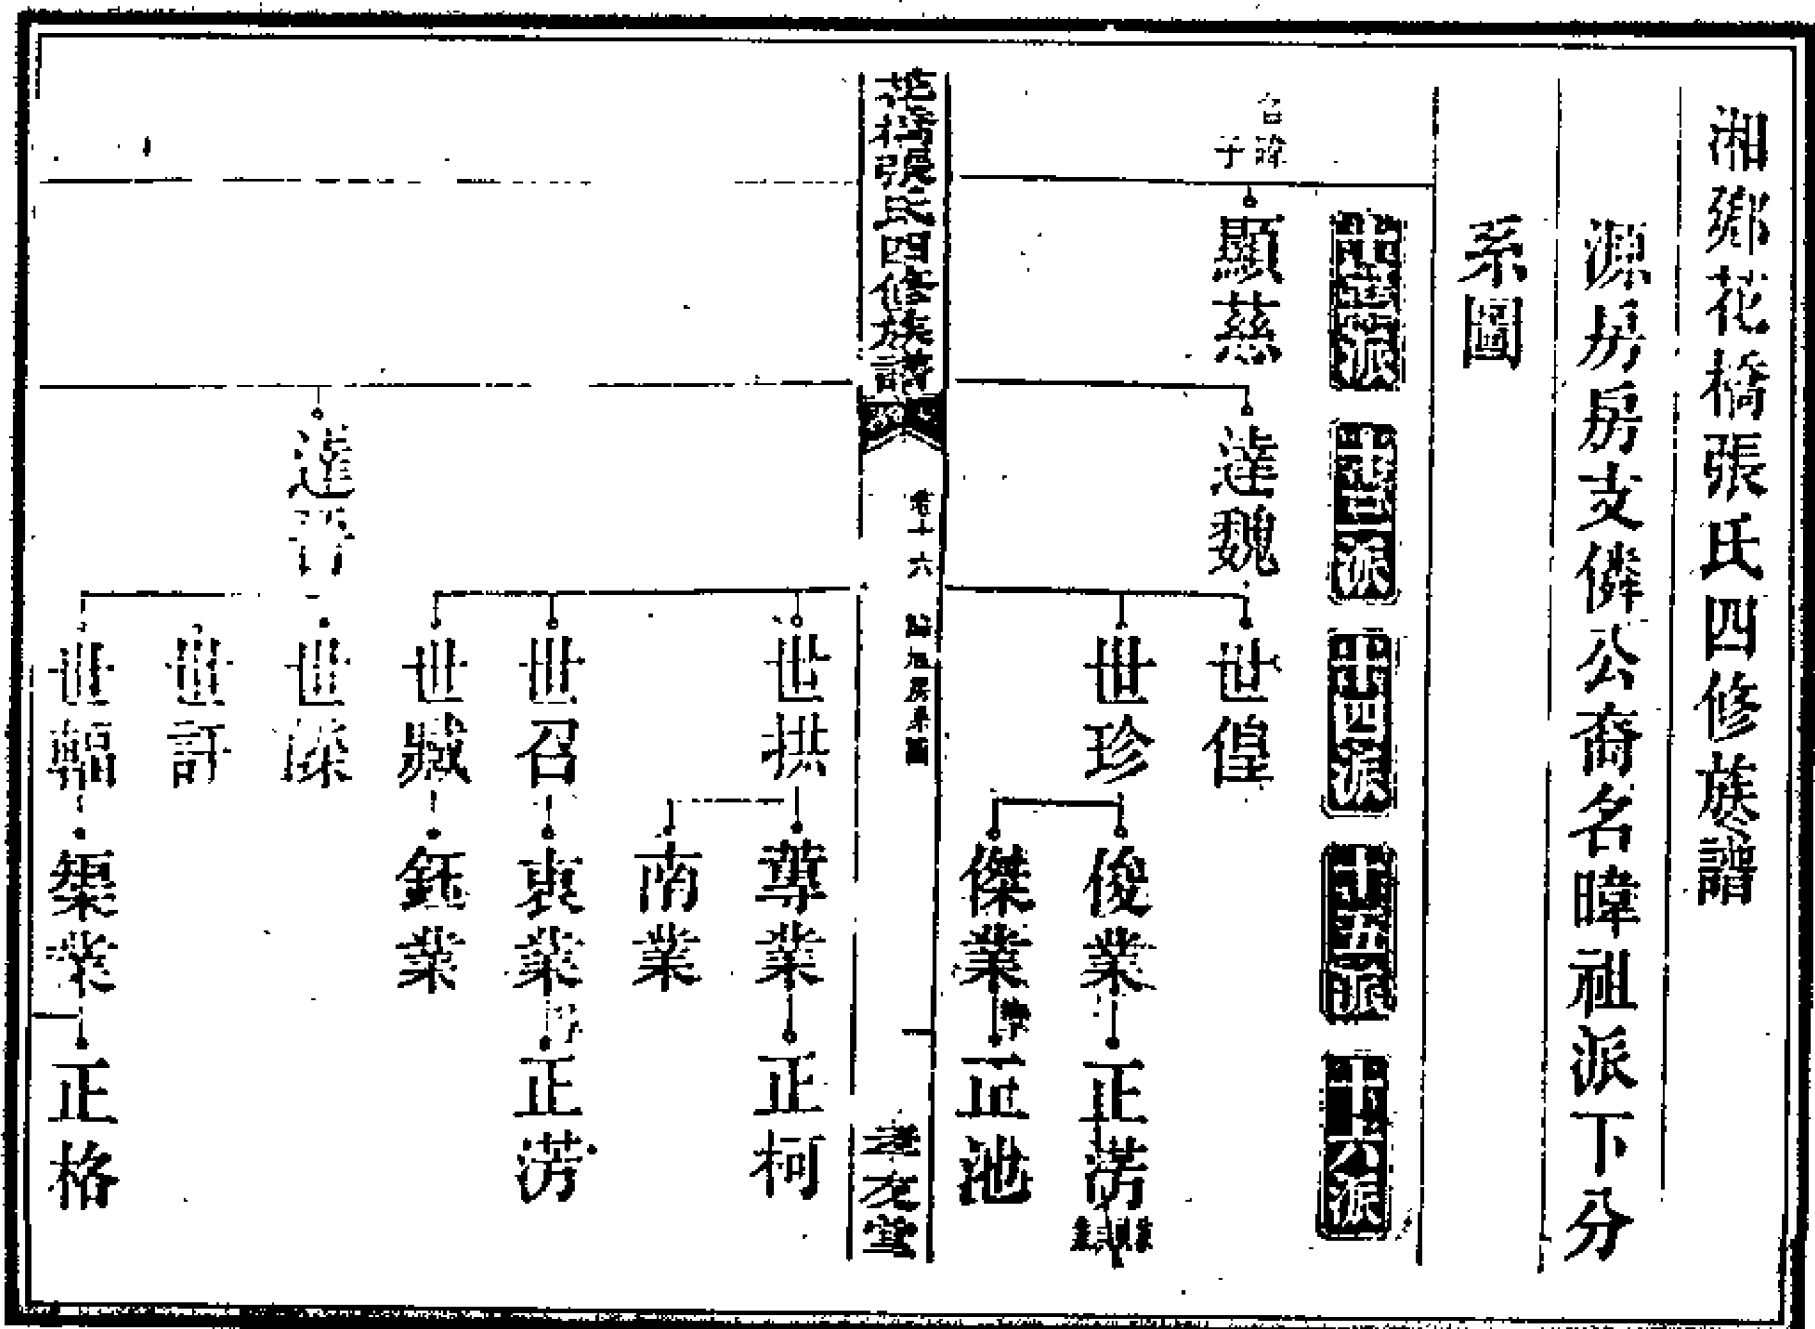 湘鄉花橋張氏四修族譜
源房房支僯公裔名暐祖派下分
系圖
十二派
十三派
十四派
十五派
十六派
名暐子
顯慈
達魏
世偟
世珍
俊業
正淓
傑業
正池
花橋張氏四修族譜
卷十六
孝友堂
世拱
蓴業
正柯
南業
世召
衷業
正淓
世臧
鈺業
達
世
世訐
世輻
榘業
正格